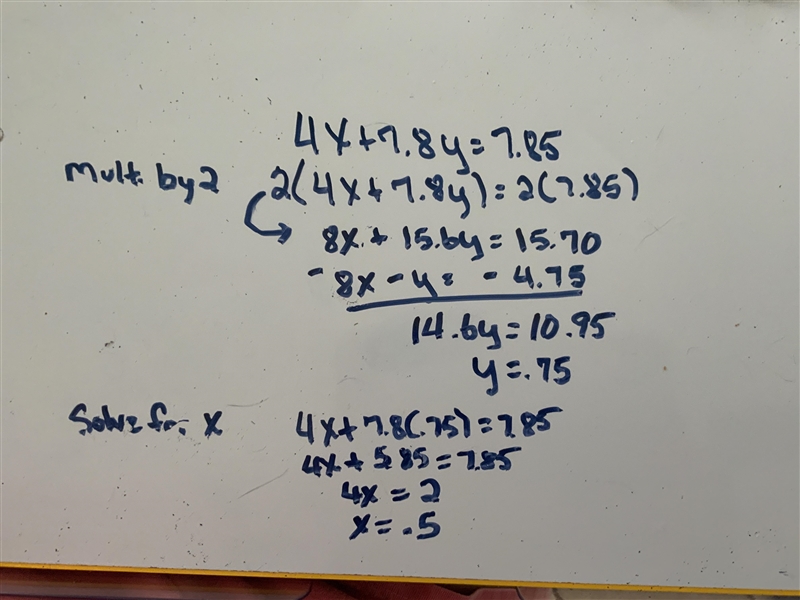 4x+7.8y=7.85
Mult. by 2 2(4x+7.8y)=2(7.85)
8x+15.6y=15.70
-8x-y=-4.75
14.6y=10.95
y=.75
Solve for x 4x+7.8(.75)=7.85
4x+5.85=7.85
4x=2
x=.5